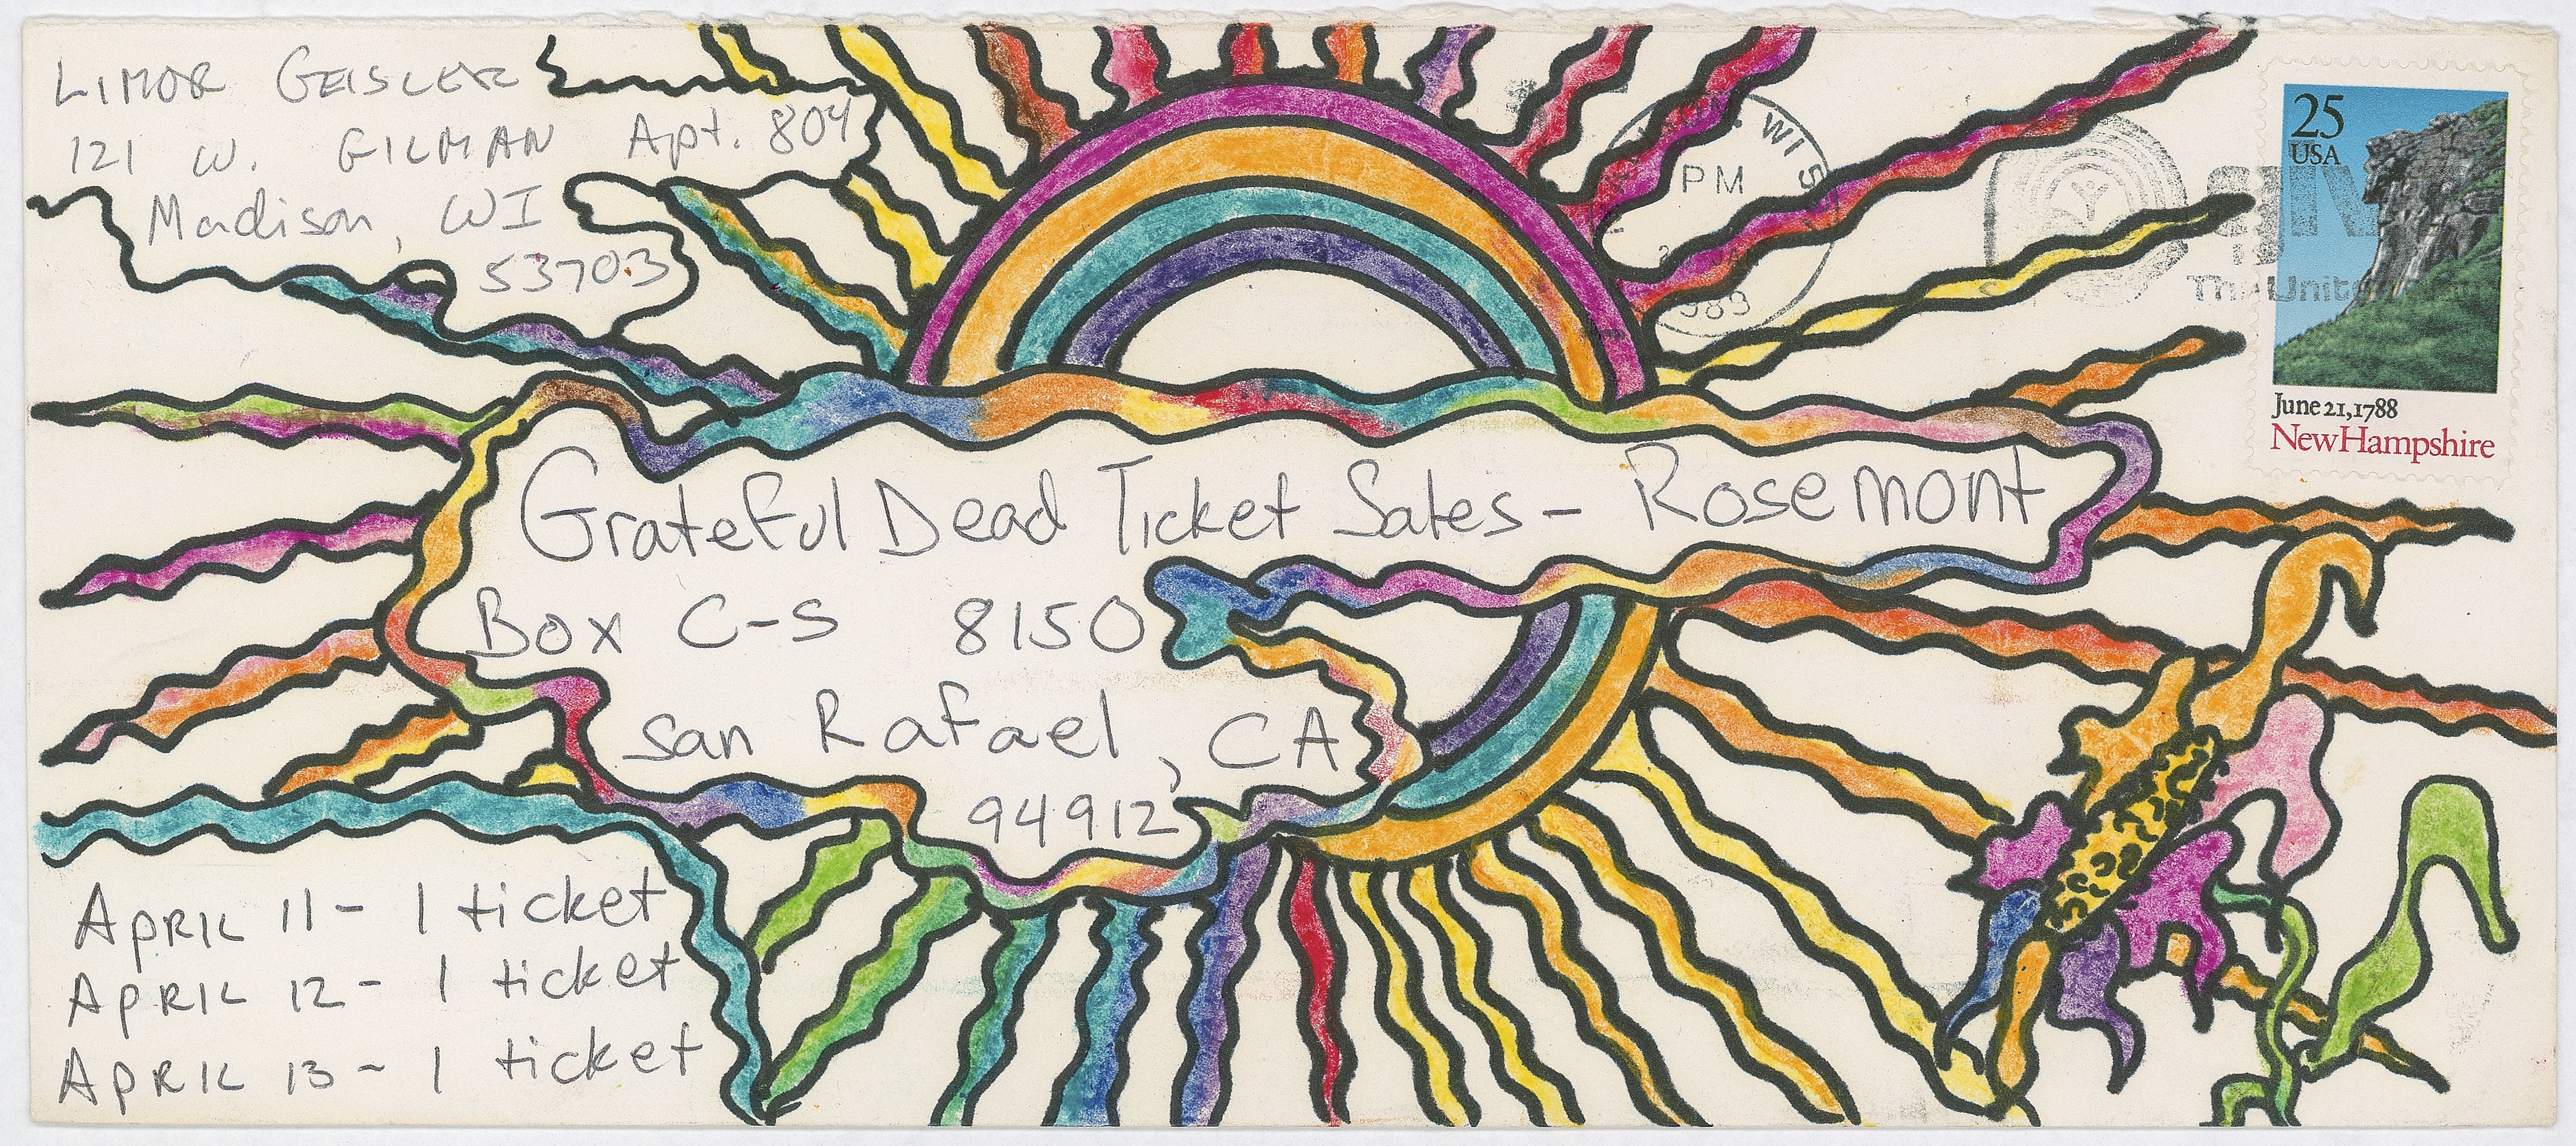 LIMOR GEISLER
121 W. GILMAN Apt. 804
Madison, WI
53703
WIS
PM
1989
25
USA
The Unite
June 21, 1788
New Hampshire
Grateful Dead Ticket Sales - Rosemont
Box C-S 8150
San Rafael, CA
94912
APRIL 11 - 1 ticket
APRIL 12 - 1 ticket
APRIL 13 - 1 ticket